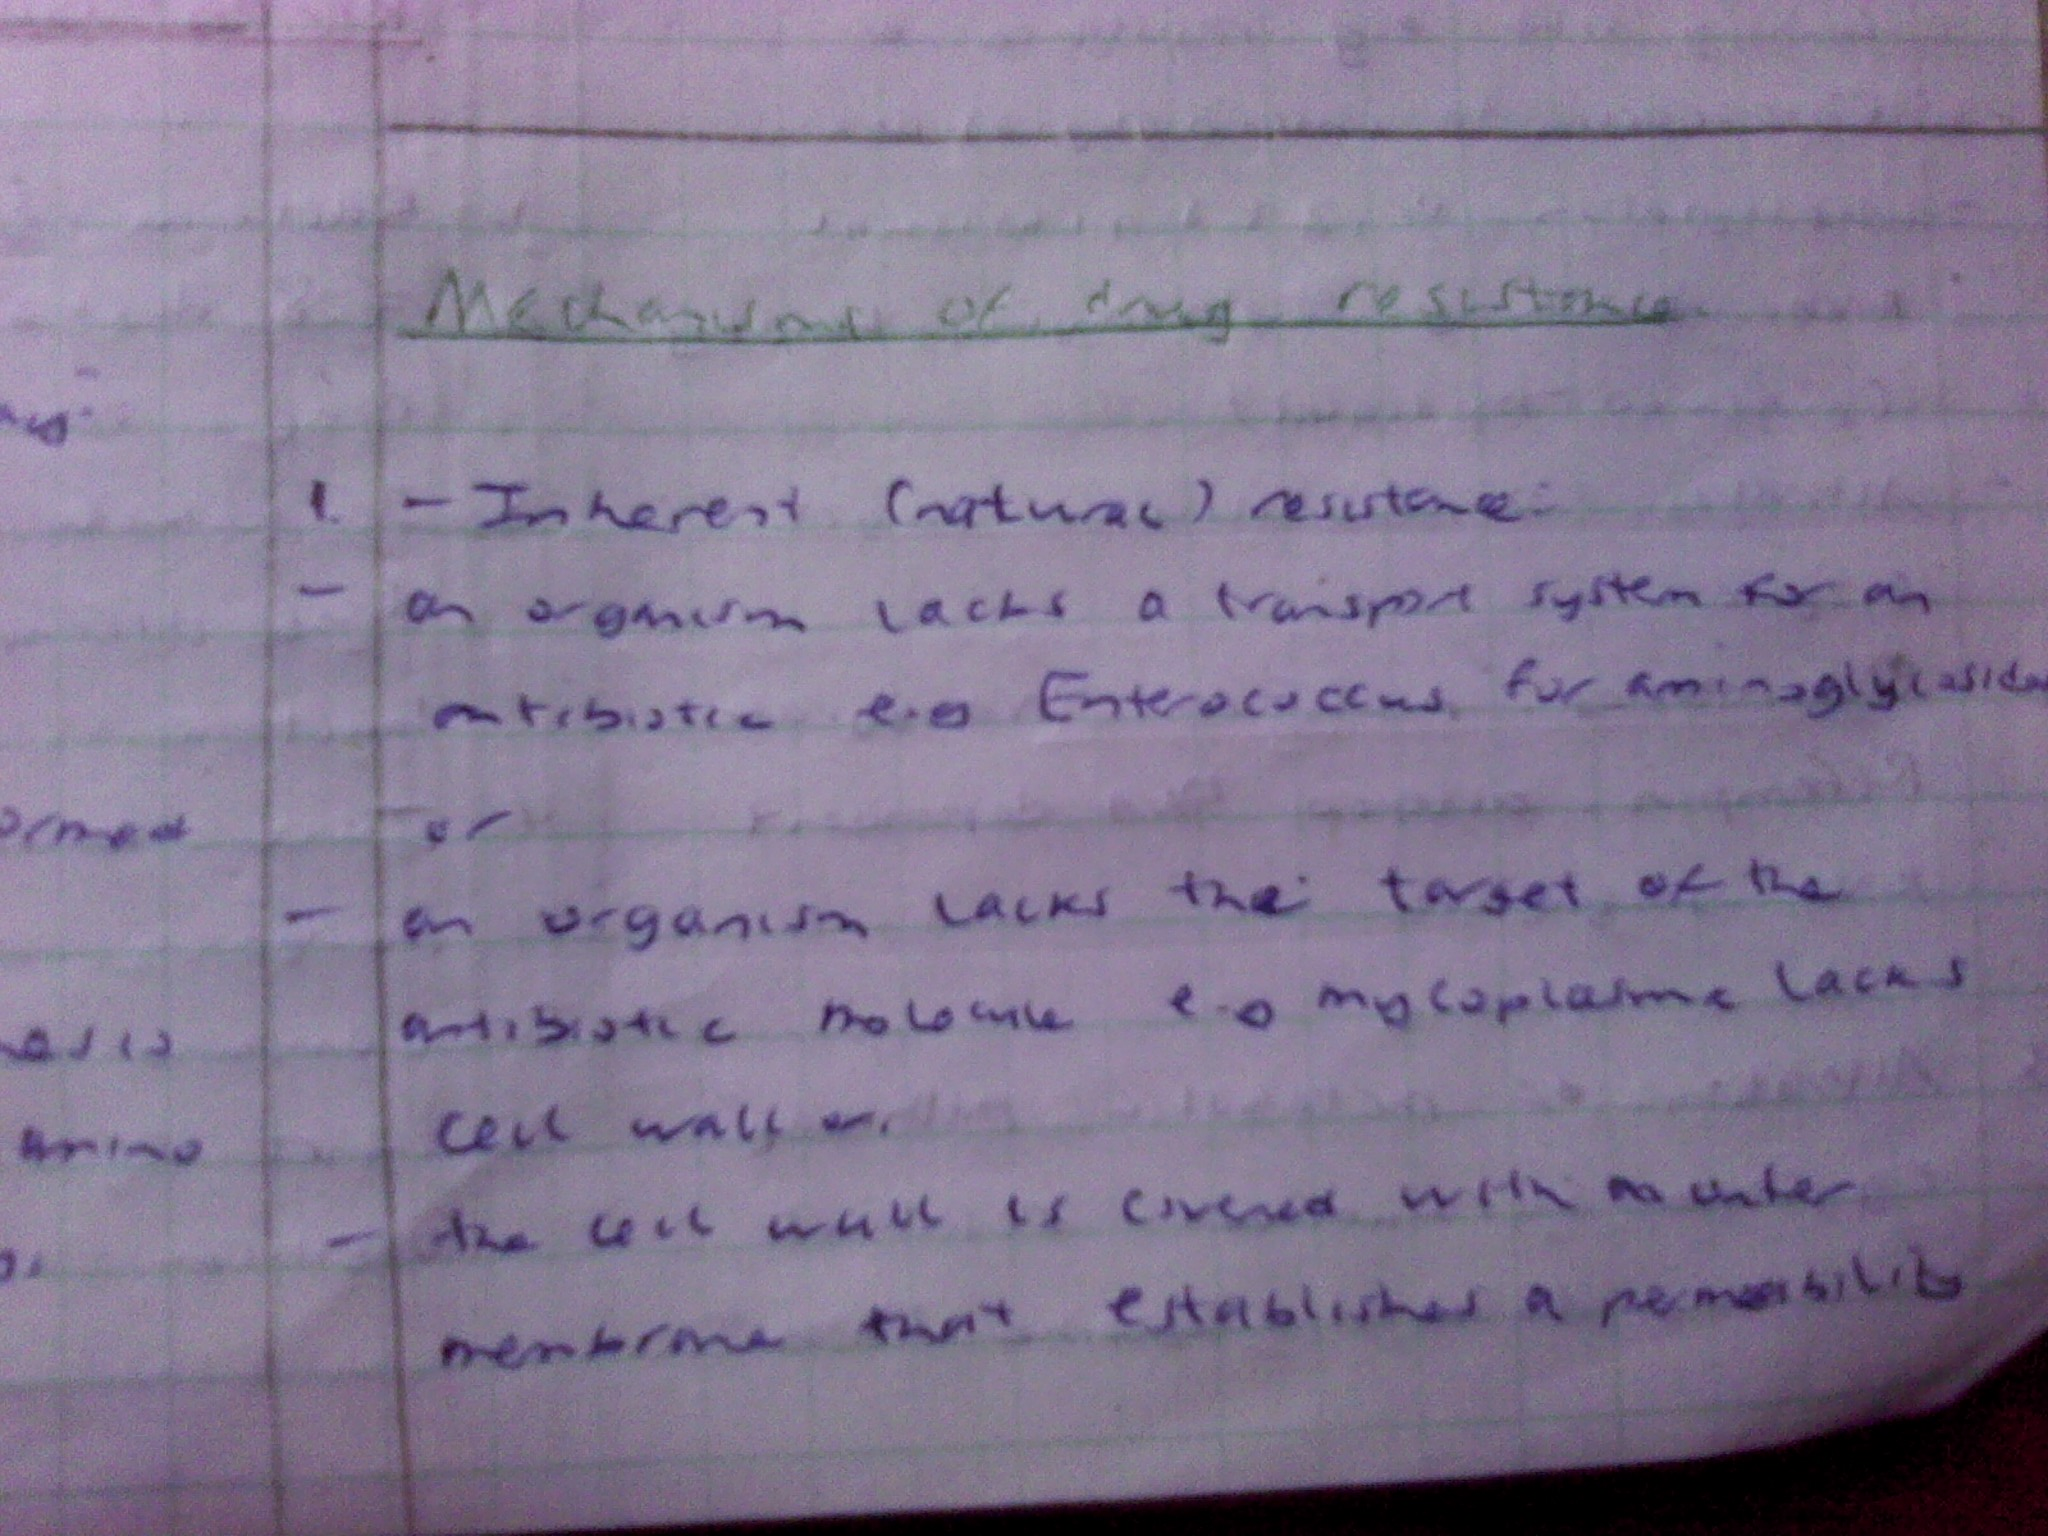 Mechanisms of drug resistance
1. - Inherent (natural) resistance:
- an organism lacks a transport system for an
antibiotic e.g Enterococcus for aminoglycosides
ormed or
- an organism lacks the target of the
antibiotic molecule e.g mycoplasma lacks
Amino cell wall or.
- the cell wall is covered with an outer
membrane that establishes a permeability